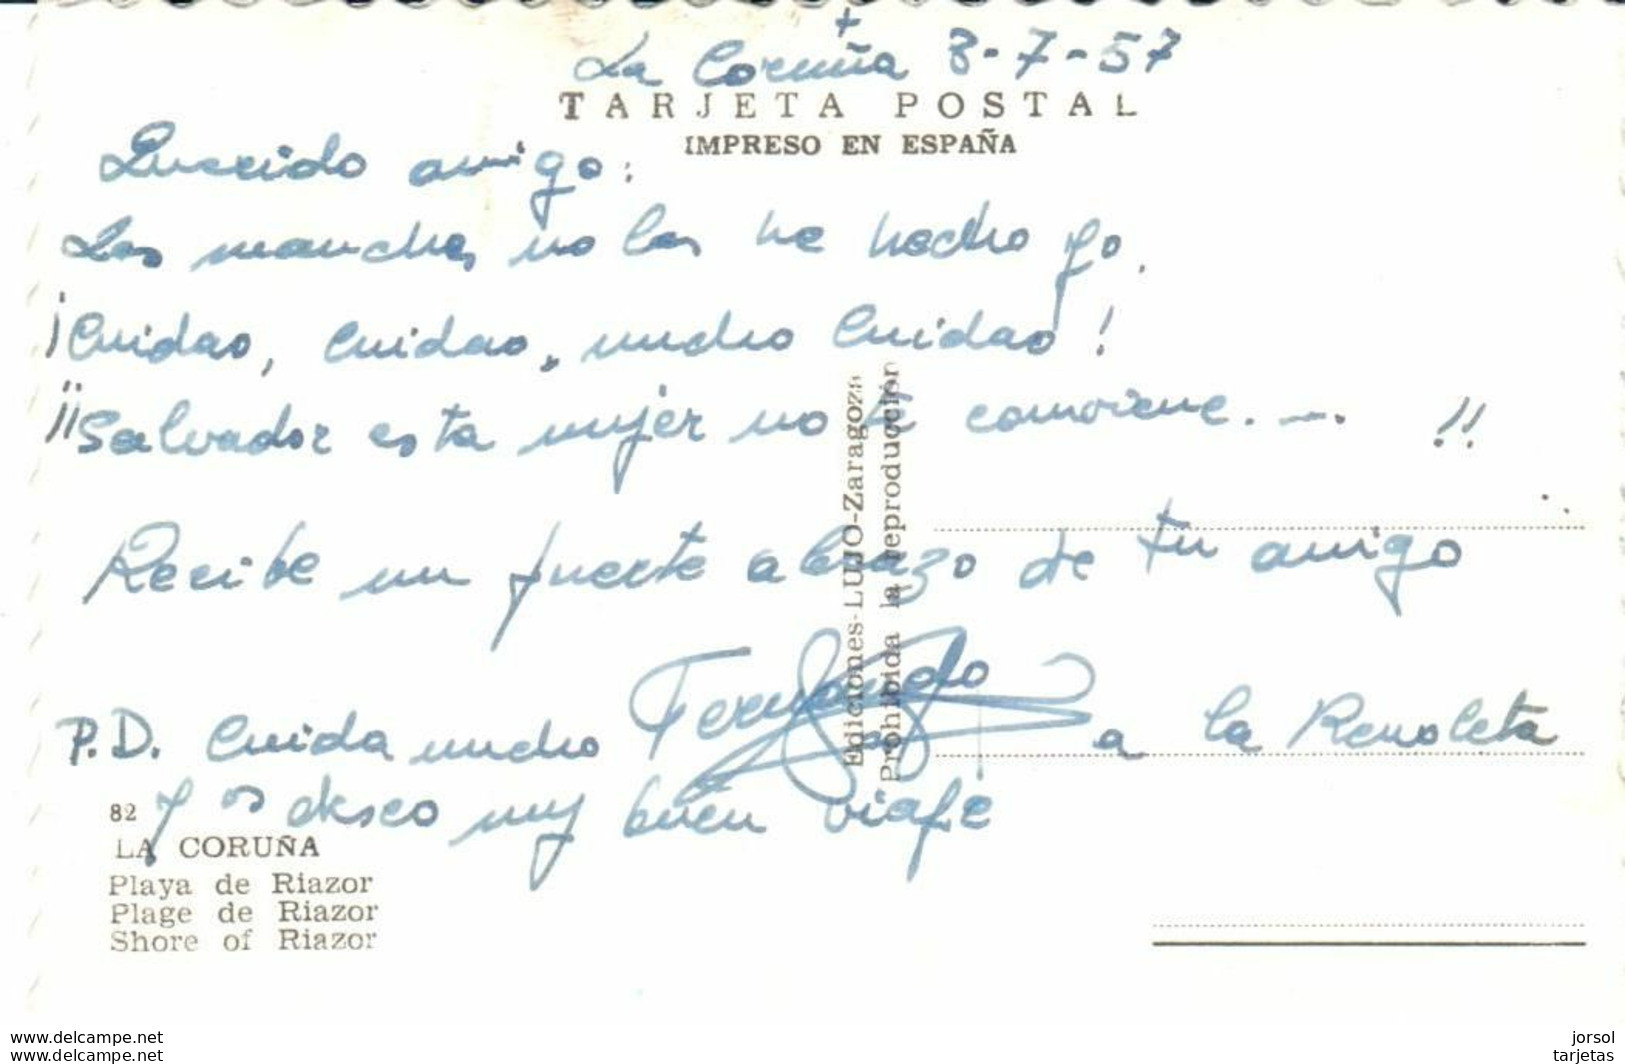 La Coruña 8-7-57
TARJETA POSTAL
IMPRESO EN ESPAÑA
Querido amigo:
Las manchas no las he hecho yo.
¡Cuidao, cuidao, mucho cuidao!
¡¡Salvador esta mujer no te conviene.—. !!
Recibe un fuerte abrazo de tu amigo
Fernando
P.D. Cuida mucho a la Renoleta
y os deseo muy buen viaje
Ediciones-LUJO-Zaragoza
Prohibida la reproducción
82
LA CORUÑA
Playa de Riazor
Plage de Riazor
Shore of Riazor
www.delcampe.net
www.delcampe.net
jorsol
tarjetas